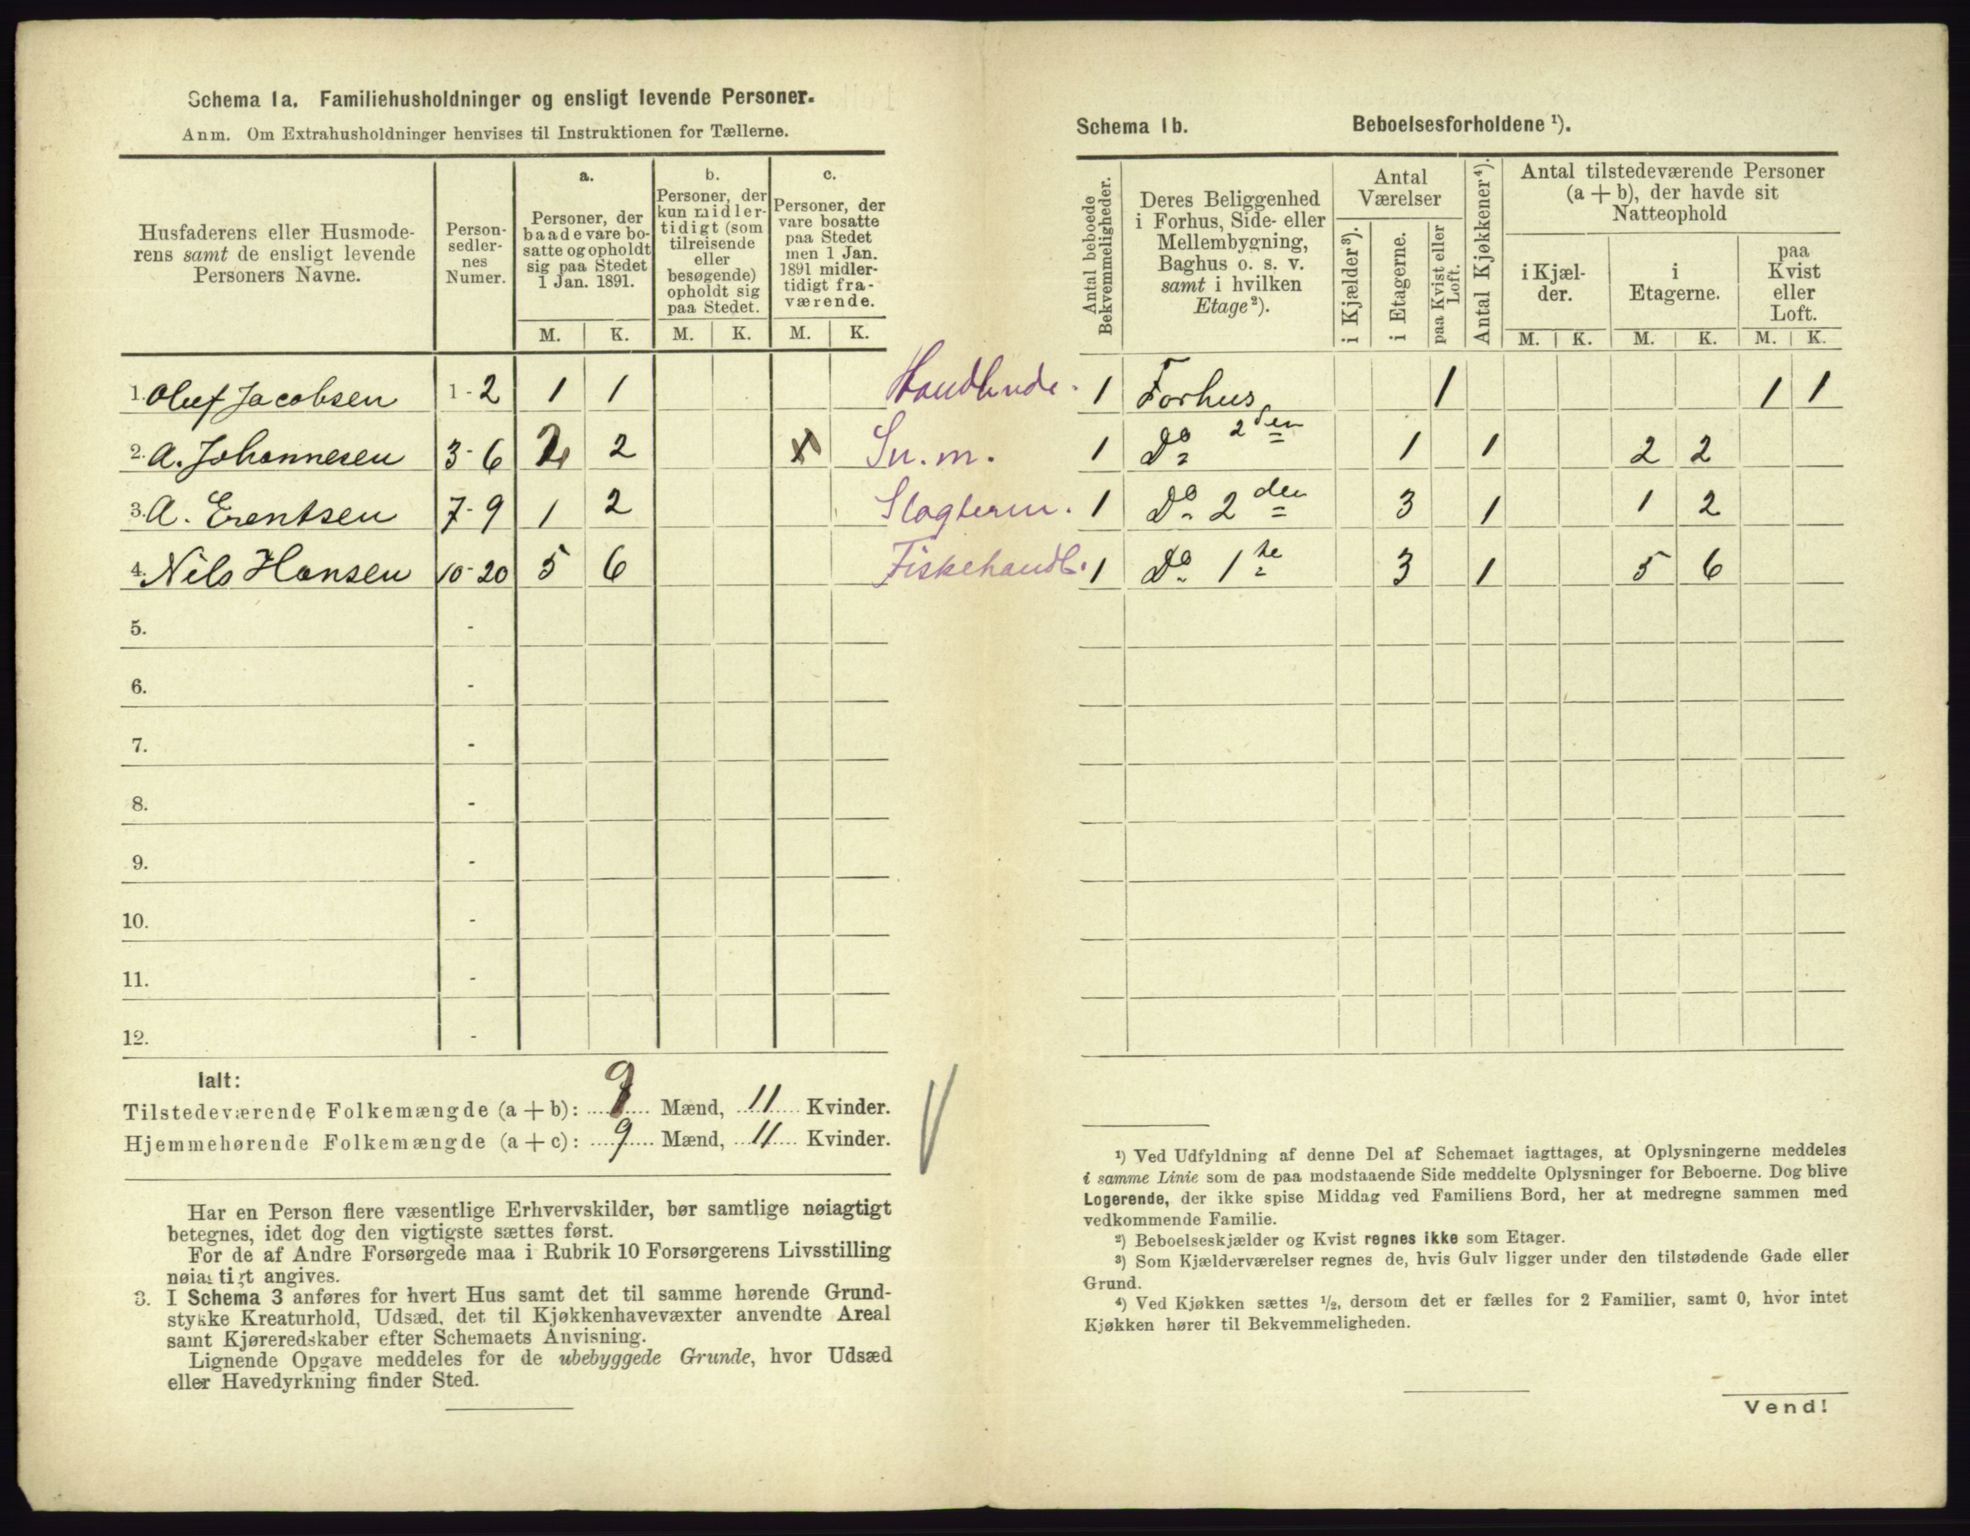 Schema 1a. Familiehusholdninger og ensligt levende Personer.
Anm. Om Extrahusholdninger henvises til Instruktionen for Tællerne.
Husfaderens eller Husmode-
rens samt de ensligt levende
Personers Navne.
Person-
sedler-
nes
Numer.
a.
Personer, der
baade vare bo-
satte og opholdt
sig paa Stedet
1 Jan. 1891.
b.
Personer, der
kun midler-
tidigt (som
tilreisende
eller
besøgende)
opholdt sig
paa Stedet.
c.
Personer, der
vare bosatte
paa Stedet
men 1 Jan.
1891 midler-
tidigt fra-
værende.
M. K. M. K. M. K.
1. Oluf Jacobsen 1-2 1 1 Handlende.
2. A. Johannesen 3-6 2 2 x Sn. m.
3. A. Erentsen 7-9 1 2 Slagterm.
4. Nils Hansen 10-20 5 6 Fiskehandl.
5. -
6. -
7. -
8. -
9. -
10. -
11. -
12. -
Ialt:
Tilstedeværende Folkemængde (a + b): 9 Mænd, 11 Kvinder.
Hjemmehørende Folkemængde (a + c): 9 Mænd, 11 Kvinder.
Har en Person flere væsentlige Erhvervskilder, bør samtlige nøiagtigt
betegnes, idet dog den vigtigste sættes først.
For de af Andre Forsørgede maa i Rubrik 10 Forsørgerens Livsstilling
nøiagtigt angives.
3. I Schema 3 anføres for hvert Hus samt det til samme hørende Grund-
stykke Kreaturhold, Udsæd, det til Kjøkkenhavevæxter anvendte Areal
samt Kjøreredskaber efter Schemaets Anvisning.
Lignende Opgave meddeles for de ubebyggede Grunde, hvor Udsæd
eller Havedyrkning finder Sted.
Schema 1b. Beboelsesforholdene ¹).
Antal beboede
Bekvemmeligheder.
Deres Beliggenhed
i Forhus, Side- eller
Mellembygning,
Baghus o. s. v.
samt i hvilken
Etage²).
Antal
Værelser
i Kjælder³).
i Etagerne.
paa Kvist eller
Loft.
Antal Kjøkkener⁴).
Antal tilstedeværende Personer
(a + b), der havde sit
Natteophold
i Kjæl-
der.
i
Etagerne.
paa
Kvist
eller
Loft.
M. K. M. K. M. K.
1 Forhus 1 1 1
1 Do 2den 1 1 2 2
1 Do 2den 3 1 1 2
1 Do 1ste 3 1 5 6
¹) Ved Udfyldning af denne Del af Schemaet iagttages, at Oplysningerne meddeles
i samme Linie som de paa modstaaende Side meddelte Oplysninger for Beboerne. Dog blive
Logerende, der ikke spise Middag ved Familiens Bord, her at medregne sammen med
vedkommende Familie.
²) Beboelseskjælder og Kvist regnes ikke som Etager.
³) Som Kjælderværelser regnes de, hvis Gulv ligger under den tilstødende Gade eller
Grund.
⁴) Ved Kjøkken sættes ½, dersom det er fælles for 2 Familier, samt 0, hvor intet
Kjøkken hører til Bekvemmeligheden.
Vend!